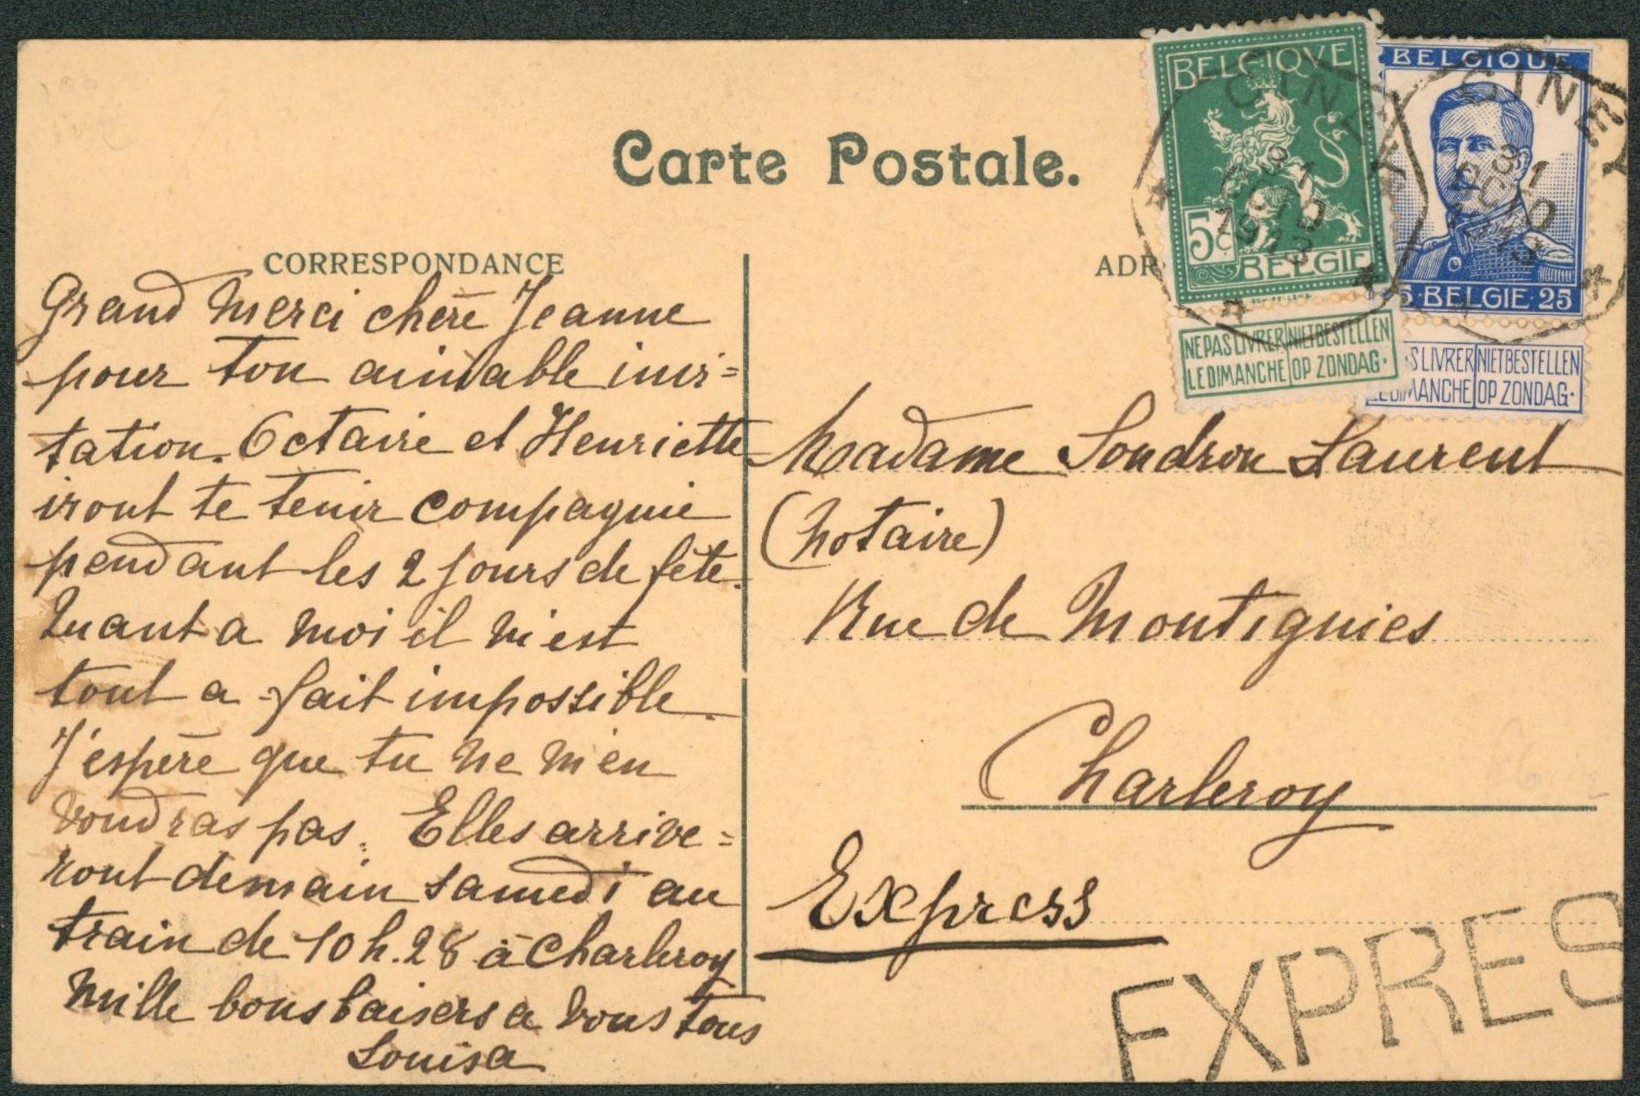 Carte Postale.
CORRESPONDANCE
Grand merci chère Jeanne
pour ton aimable invi=
tation. Octavie et Henriette
iront te tenir compagnie
pendant les 2 jours de fête.
Quant a moi il m'est
tout a fait impossible.
J'espère que tu ne m'en
voudras pas. Elles arrive=
ront demain samedi au
train de 10 h. 28 à Charleroy
Mille bons baisers a vous tous
Louisa
ADR
BELGIQVE
5c
BELGIE
NE PAS LIVRER LE DIMANCHE
NIET BESTELLEN OP ZONDAG.
BELGIQUE
5 · BELGIE 25
S LIVRER LE DIMANCHE
NIET BESTELLEN OP ZONDAG.
CINEY
31
1913
CINEY
31
1913
Madame Sondron Laurent
(notaire)
Rue de Montignies
Charleroy
Express
EXPRES